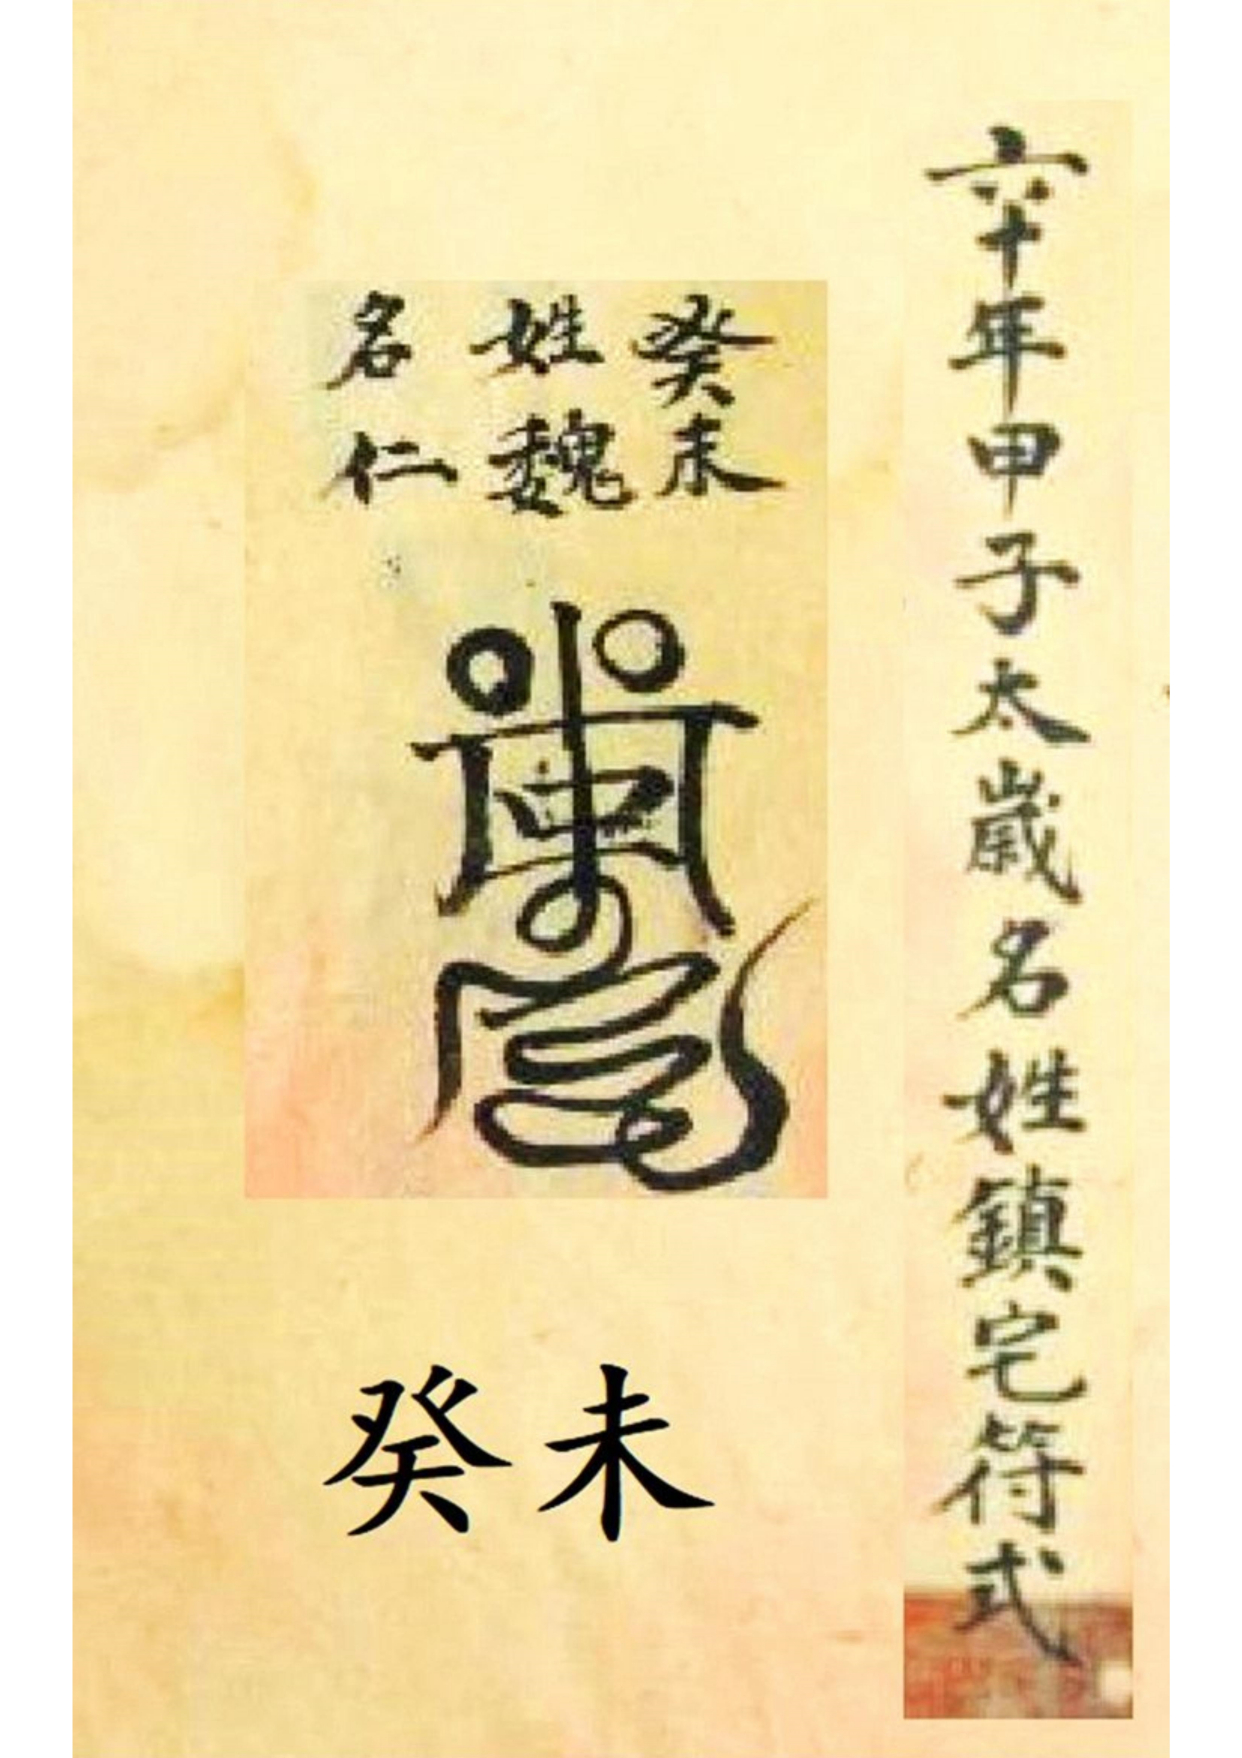 六十年甲子太歲名姓鎮宅符式
癸未
姓魏
名仁
癸未